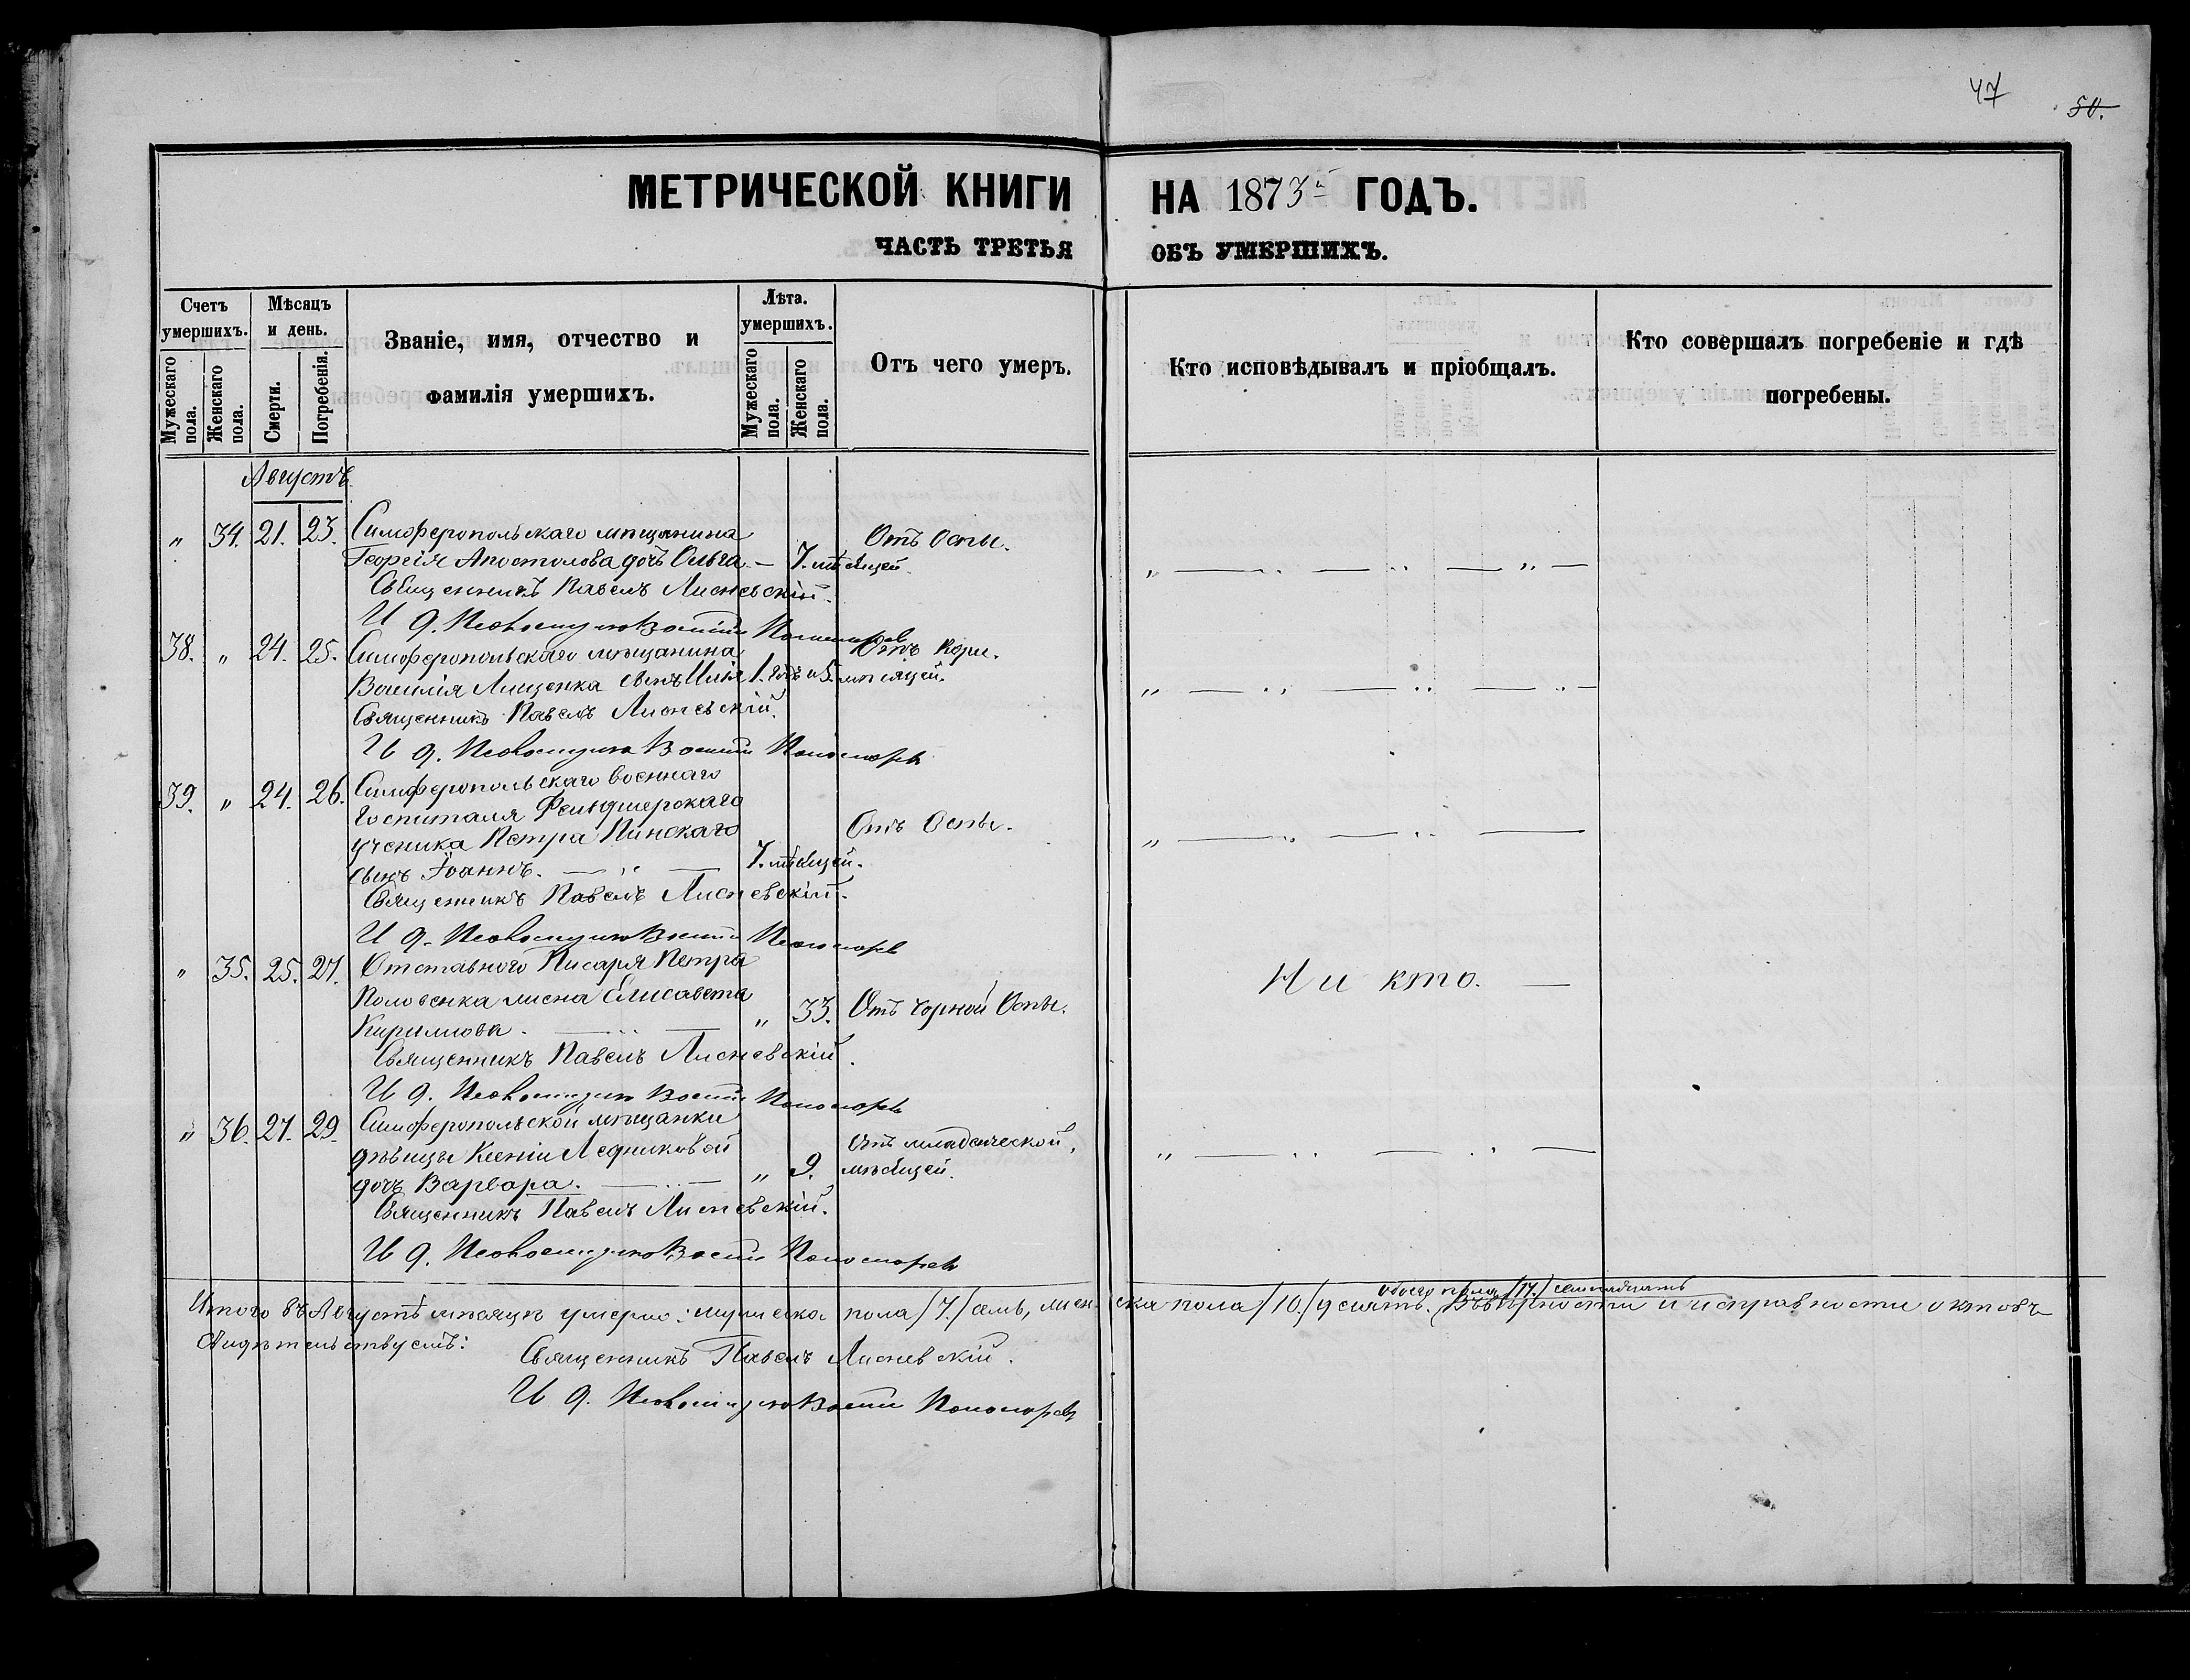 47
50.
МЕТРИЧЕСКОЙ КНИГИ НА 1873й ГОДЪ.
ЧАСТЬ ТРЕТЬЯ ОБЪ УМЕРШИХЪ.
Счетъ умершихъ.
Мужескаго пола.
Женскаго пола.
Мѣсяцъ и день.
Смерти.
Погребенія.
Званіе, имя, отчество и
фамилія умершихъ.
Лѣта. умершихъ.
Мужескаго пола.
Женскаго пола.
Отъ чего умеръ.
Кто исповѣдывалъ и пріобщалъ.
Кто совершалъ погребеніе и гдѣ
погребены.
Августъ.
„ 34. 21. 23. Симферопольскаго мѣщанина Отъ Оспы.
Георгія Апостолова дочь Ольга. — 7. мѣсяцей
Священникъ Павелъ Лисневскій.
И д. Псаломщика Пономарев
38. „ 24. 25. Симферопольскаго мѣщанина Отъ Кори.
Василія Лищенка сынъ Илія 1. годъ и 5. мѣсяцей.
Священникъ Павелъ Лисневскій.
И д. Псаломщика Пономарев
39. „ 24. 26. Симферопольскаго военнаго
госпиталя Фельдшерскаго
ученика Петра Пинскаго Отъ Оспы.
сынъ Іоаннъ. — 7. мѣсяцей.
Священникъ Павелъ Лисневскій.
И д. Псаломщика Пономарев
„ 35. 25. 27. Отставного Писаря Петра Ни кто. —
Половенка жена Елисавета „ 33. Отъ чорной Оспы.
Кирилиова. —
Священникъ Павелъ Лисневскій.
И д. Псаломщика Пономарев
„ 36. 27. 29. Симферопольской мѣщанки
дѣвицы Ксеніи Ледниковой Отъ младенческой,
дочь Варвара. — „ 9. мѣсяцей.
Священникъ Павелъ Лисневскій.
И д. Псаломщика Пономарев
обоего пола /17./ семнадцать
Итого въ Августѣ мѣсяцѣ умерло: мужеска пола /7./ семь, женска пола /10./ десять. Въ вѣрности и исправности актовъ
свидѣтельствуемъ:
Священникъ Павелъ Лисневскій.
И д. Псаломщика Пономарев